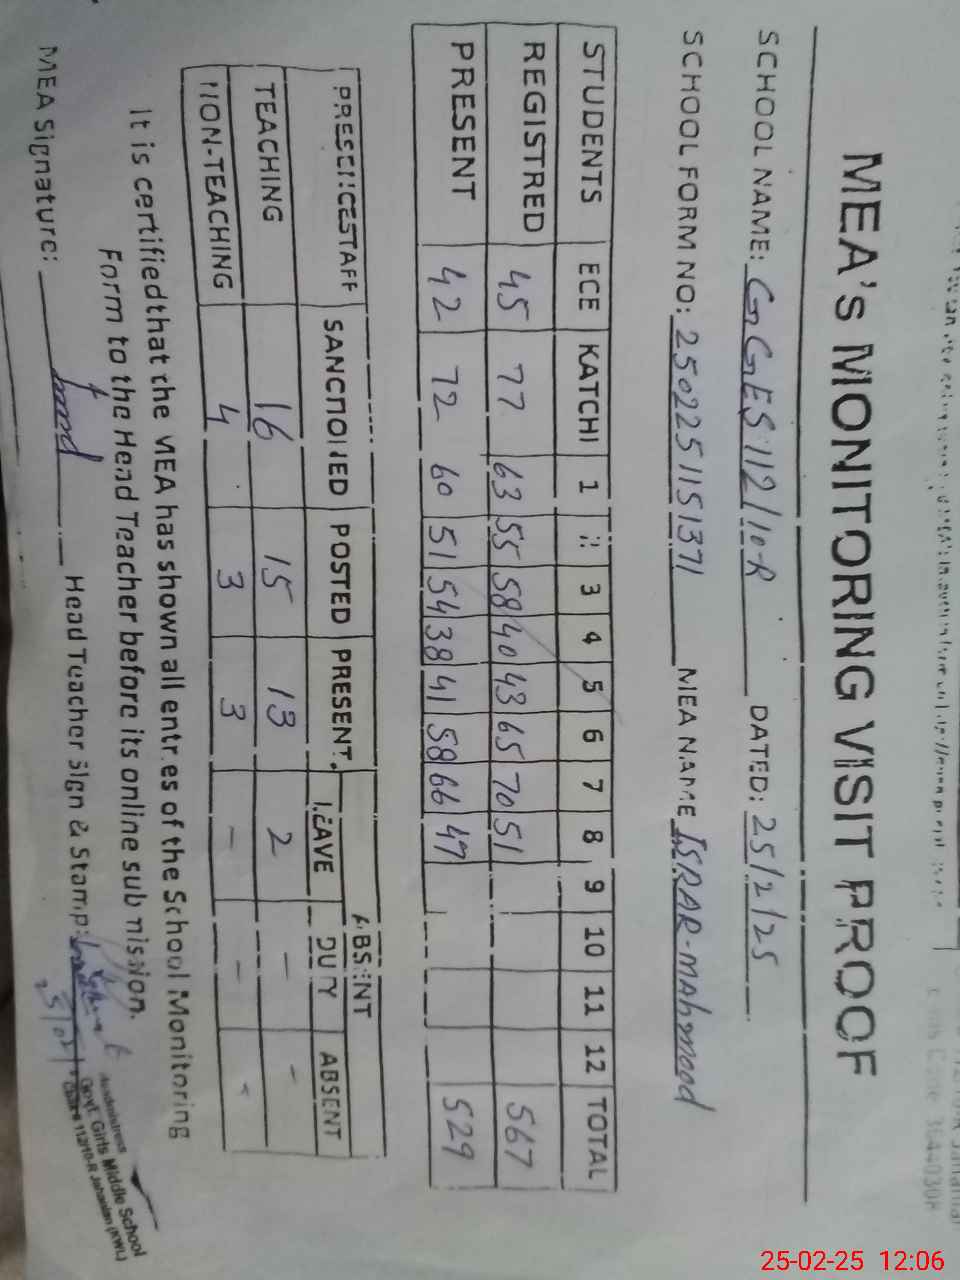 MEA's MONITORING VISIT PROOF
SCHOOL NAME: GGES 112/10-R DATED: 25/2/25
SCHOOL FORM NO: 2502251151371 MEA NAME ISRAR-MAHMOOD
STUDENTS ECE KATCHI 1 2 3 4 5 6 7 8 9 10 11 12 TOTAL
REGISTRED 45 77 63 55 58 40 43 65 70 51 567
PRESENT 42 72 60 51 54 38 41 58 66 47 529
PRESENCESTAFF SANCTIONED POSTED PRESENT ABSENT
LEAVE DUTY ABSENT
TEACHING 16 15 13 2 - -
NON-TEACHING 4 3 3 - - -
It is certified that the MEA has shown all entries of the School Monitoring
Form to the Head Teacher before its online submission.
MEA Signature: Head Teacher Sign & Stamp:
25/02/
Headmistress
Govt. Girls Middle School
Chak # 112/10-R Jahanian (KWL)
25-02-25 12:06